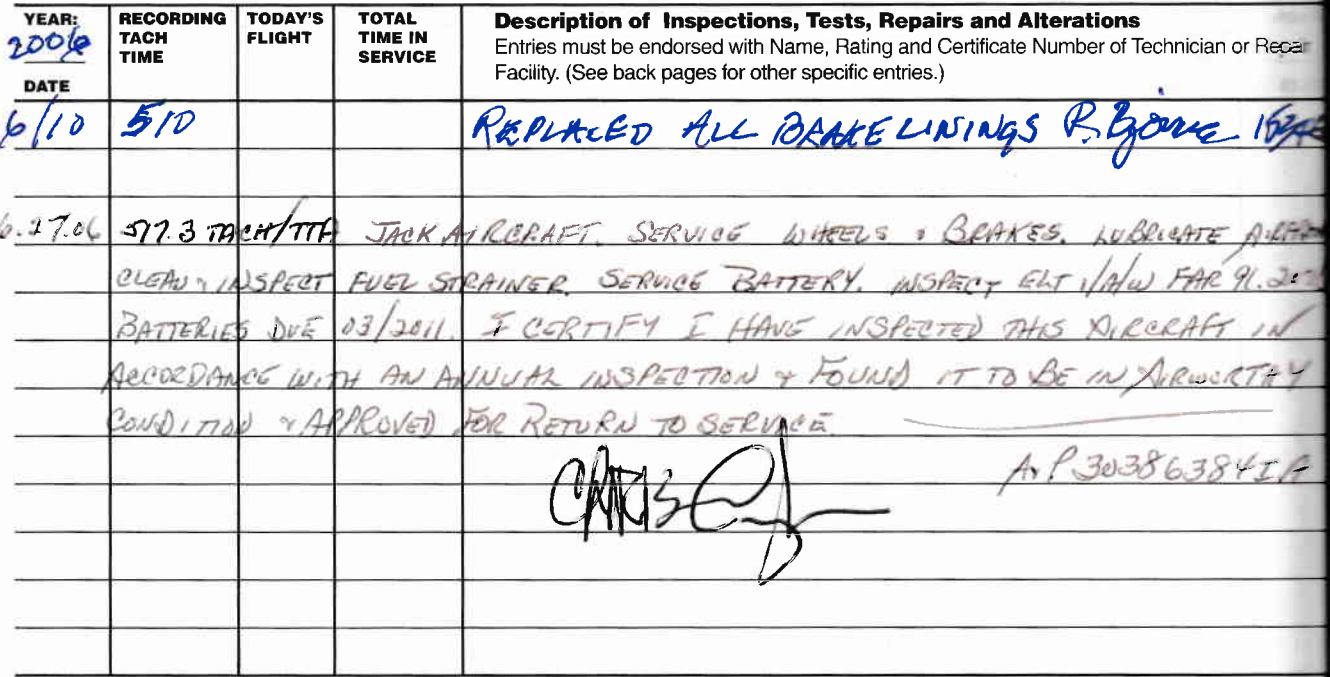 YEAR: 2006
DATE
RECORDING TACH TIME
TODAY'S FLIGHT
TOTAL TIME IN SERVICE
Description of Inspections, Tests, Repairs and Alterations
Entries must be endorsed with Name, Rating and Certificate Number of Technician or Repair
Facility. (See back pages for other specific entries.)
6/10 510 REPLACED ALL BRAKE LININGS
6.27.06 517.3 TACH/TTA JACK AIRCRAFT. SERVICE WHEELS & BRAKES. LUBRICATE
CLEAN & INSPECT FUEL STRAINER. SERVICE BATTERY. INSPECT ELT I/A/W FAR 91.
BATTERIES DUE 03/2011. I CERTIFY I HAVE INSPECTED THIS AIRCRAFT IN
ACCORDANCE WITH AN ANNUAL INSPECTION & FOUND IT TO BE IN AIRWORTHY
CONDITION & APPROVED FOR RETURN TO SERVICE.
A&P 30386384 IA
CHRIS